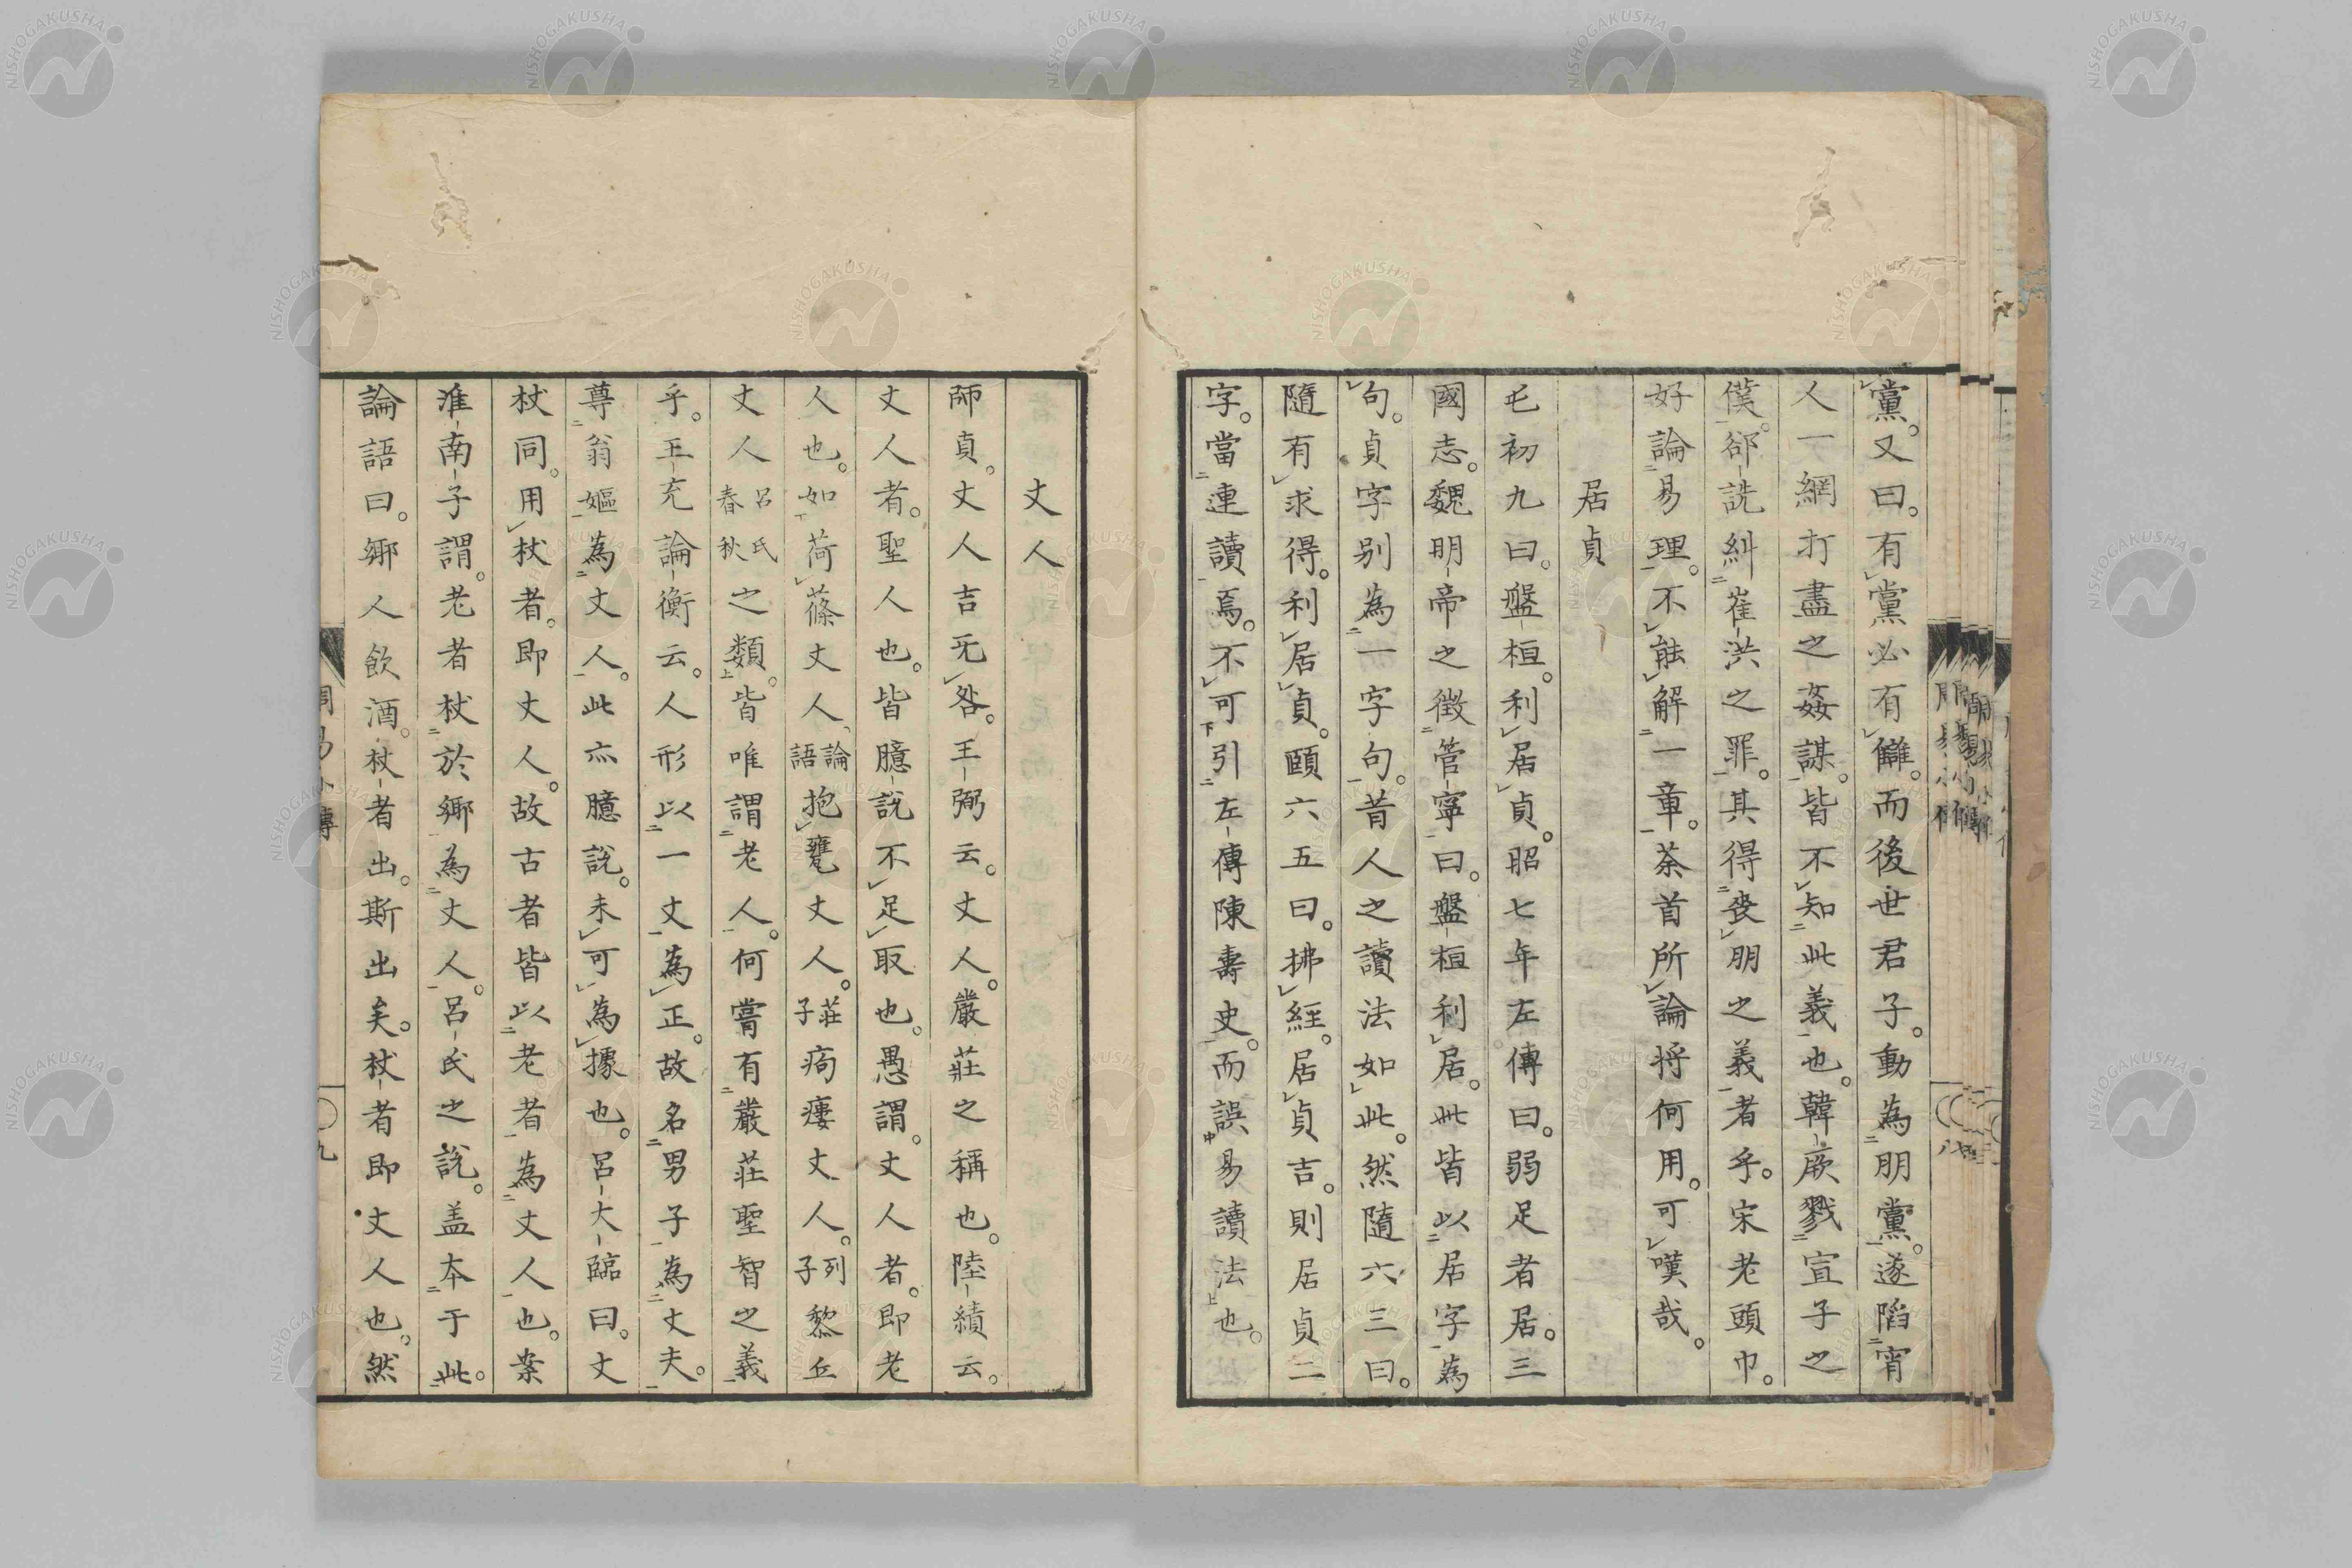 黨。又曰。有黨必有讎。而後世君子。動為朋黨。遂陷宵
人一網打盡之姦謀。皆不知此義也。韓厥戮宣子之
僕。郤詵糾崔洪之罪。其得喪朋之義者乎。宋老頭巾。
好論易理。不能解一章。荼首所論將何用。可嘆哉。
居貞
屯初九曰。盤桓。利居貞。昭七年左傳曰。弱足者居。三
國志。魏明帝之徴管寧曰。盤桓利居。此皆以居字為
句。貞字別為一字句。昔人之讀法如此。然隨六三曰。
隨有求得。利居貞。頤六五曰。拂經。居貞吉。則居貞二
字。當連讀焉。不可引左傳陳壽史。而誤易讀法也。
丈人
師貞。丈人吉无咎。王弼云。丈人。嚴莊之稱也。陸績云。
丈人者。聖人也。皆臆說不足取也。愚謂。丈人者。即老
人也。如荷蓧丈人、論語抱甕丈人。莊子痀瘻丈人。列子黎丘
丈人呂氏春秋之類。皆唯謂老人。何嘗有嚴莊聖智之義
乎。王充論衡云。人形以一丈為正。故名男子為丈夫。
尊翁嫗為丈人。此亦臆說。未可為據也。呂大臨曰。丈
杖同。用杖者。即丈人。故古者皆以老者為丈人也。案
淮南子謂。老者杖於鄉為丈人。呂氏之說。盖本于此。
論語曰。鄉人飲酒。杖者出。斯出矣。杖者即丈人也。然
周易小傳
九
八